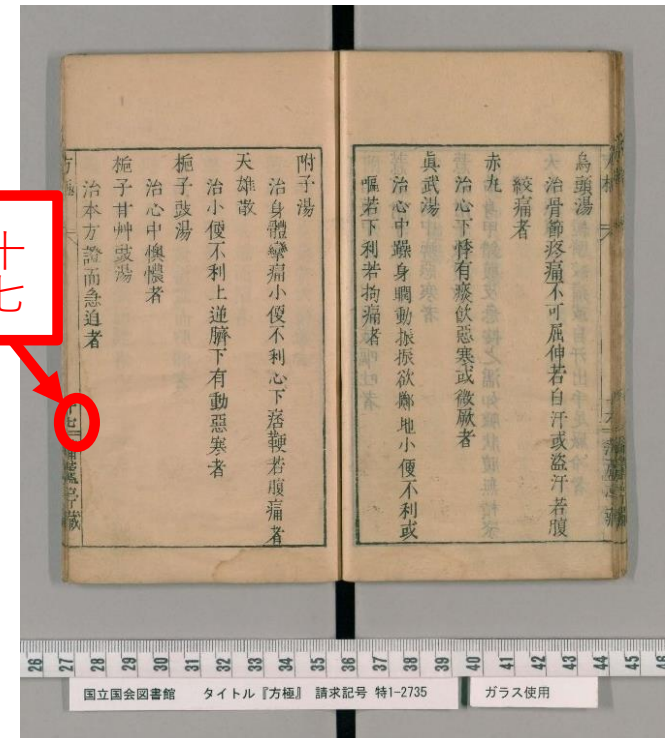 烏頭湯
治骨節疼痛不可屈伸若自汗或盜汗若腹
絞痛者
赤丸
治心下悸有痰飮惡寒或微厥者
眞武湯
治心中躁身瞤動振振欲擗地小便不利或
嘔若下利若拘痛者
附子湯
治身體攣痛小便不利心下痞鞕若腹痛者
天雄散
治小便不利上逆臍下有動惡寒者
梔子豉湯
治心中懊憹者
梔子甘艸豉湯
治本方證而急迫者
方極
十七
十七
26 27 28 29 30 31 32 33 34 35 36 37 38 39 40 41 42 43 44 45 46
国立国会図書館 タイトル『方極』 請求記号 特1-2735
ガラス使用